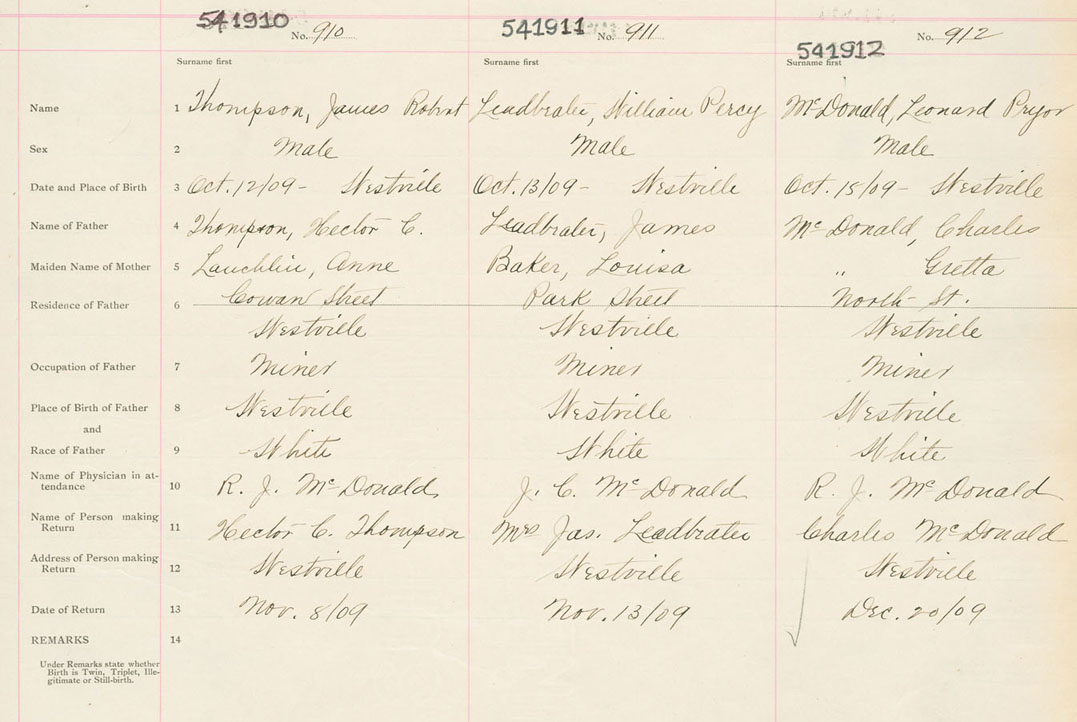 541910 No. 910 541911 No. 911 541912 No. 912
Surname first Surname first Surname first
Name 1 Thompson, James Robert Leadbrater, William Percy McDonald, Leonard Pryor
Sex 2 Male Male Male
Date and Place of Birth 3 Oct. 12/09 - Westville Oct. 13/09 - Westville Oct. 15/09 - Westville
Name of Father 4 Thompson, Hector C. Leadbrater, James McDonald, Charles
Maiden Name of Mother 5 Lauchlin, Anne Baker, Louisa " Gretta
Residence of Father 6 Cowan Street Park Street North St.
Westville Westville Westville
Occupation of Father 7 Miner Miner Miner
Place of Birth of Father 8 Westville Westville Westville
and
Race of Father 9 White White White
Name of Physician in at-
tendance 10 R. J. McDonald J. C. McDonald R. J. McDonald
Name of Person making
Return 11 Hector C. Thompson Mrs Jas. Leadbrater Charles McDonald
Address of Person making
Return 12 Westville Westville Westville
Date of Return 13 Nov. 8/09 Nov. 13/09 Dec. 20/09
REMARKS 14
Under Remarks state whether
Birth is Twin, Triplet, Ille-
gitimate or Still-birth.